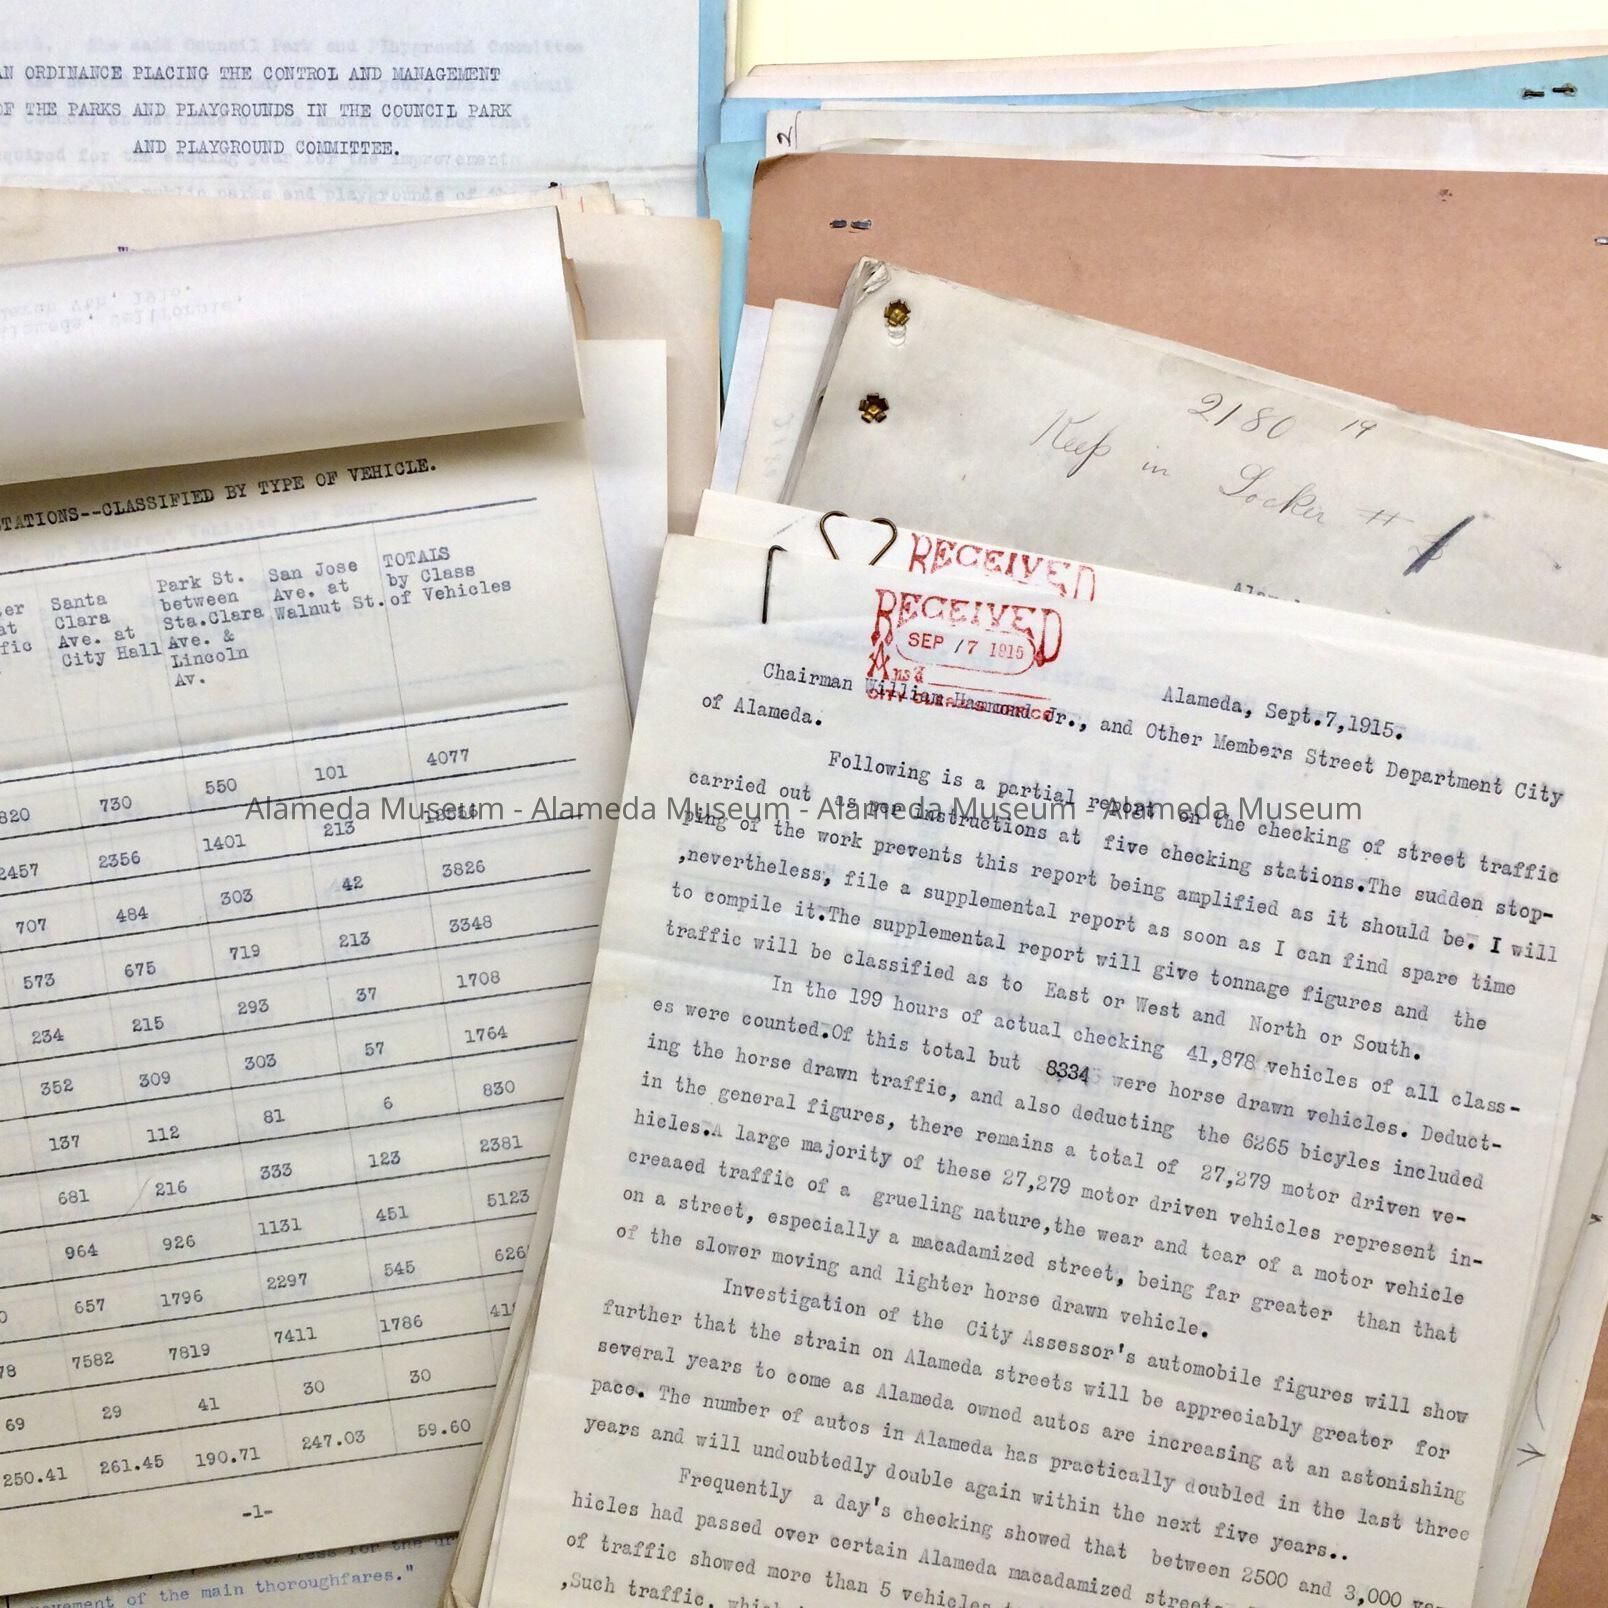 AN ORDINANCE PLACING THE CONTROL AND MANAGEMENT
OF THE PARKS AND PLAYGROUNDS IN THE COUNCIL PARK
AND PLAYGROUND COMMITTEE.
2
STATIONS--CLASSIFIED BY TYPE OF VEHICLE.
Santa Clara Ave. at City Hall
Park St. between Sta.Clara Ave. & Lincoln Av.
San Jose Ave. at Walnut St.
TOTALS by Class of Vehicles
820 730 550 101 4077
2457 2356 1401 213
707 484 303 42 3826
573 675 719 213 3348
234 215 293 37 1708
352 309 303 57 1764
137 112 81 6 830
681 216 333 123 2381
964 926 1131 451 5123
657 1796 2297 545 626
78 7582 7819 7411 1786 41
69 29 41 30 30
250.41 261.45 190.71 247.03 59.60
-1-
pavement of the main thoroughfares."
2180 19
Keep in Locker #
RECEIVED
RECEIVED
SEP 7 1915
Ans'd
CITY CLERK'S OFFICE
Alameda, Sept.7,1915.
Chairman William Hammond Jr., and Other Members Street Department City
of Alameda.
Following is a partial report on the checking of street traffic
carried out as per instructions at five checking stations.The sudden stop-
ping of the work prevents this report being amplified as it should be. I will
,nevertheless, file a supplemental report as soon as I can find spare time
to compile it.The supplemental report will give tonnage figures and the
traffic will be classified as to East or West and North or South.
In the 199 hours of actual checking 41,878 vehicles of all class-
es were counted.Of this total but 8334 were horse drawn vehicles. Deduct-
ing the horse drawn traffic, and also deducting the 6265 bicyles included
in the general figures, there remains a total of 27,279 motor driven ve-
hicles.A large majority of these 27,279 motor driven vehicles represent in-
creaaed traffic of a grueling nature,the wear and tear of a motor vehicle
on a street, especially a macadamized street, being far greater than that
of the slower moving and lighter horse drawn vehicle.
Investigation of the City Assessor's automobile figures will show
further that the strain on Alameda streets will be appreciably greater for
several years to come as Alameda owned autos are increasing at an astonishing
pace. The number of autos in Alameda has practically doubled in the last three
years and will undoubtedly double again within the next five years..
Frequently a day's checking showed that between 2500 and 3,000 ve-
hicles had passed over certain Alameda macadamized streets.
of traffic showed more than 5 vehicles
,Such traffic,
Alameda Museum - Alameda Museum - Alameda Museum - Alameda Museum